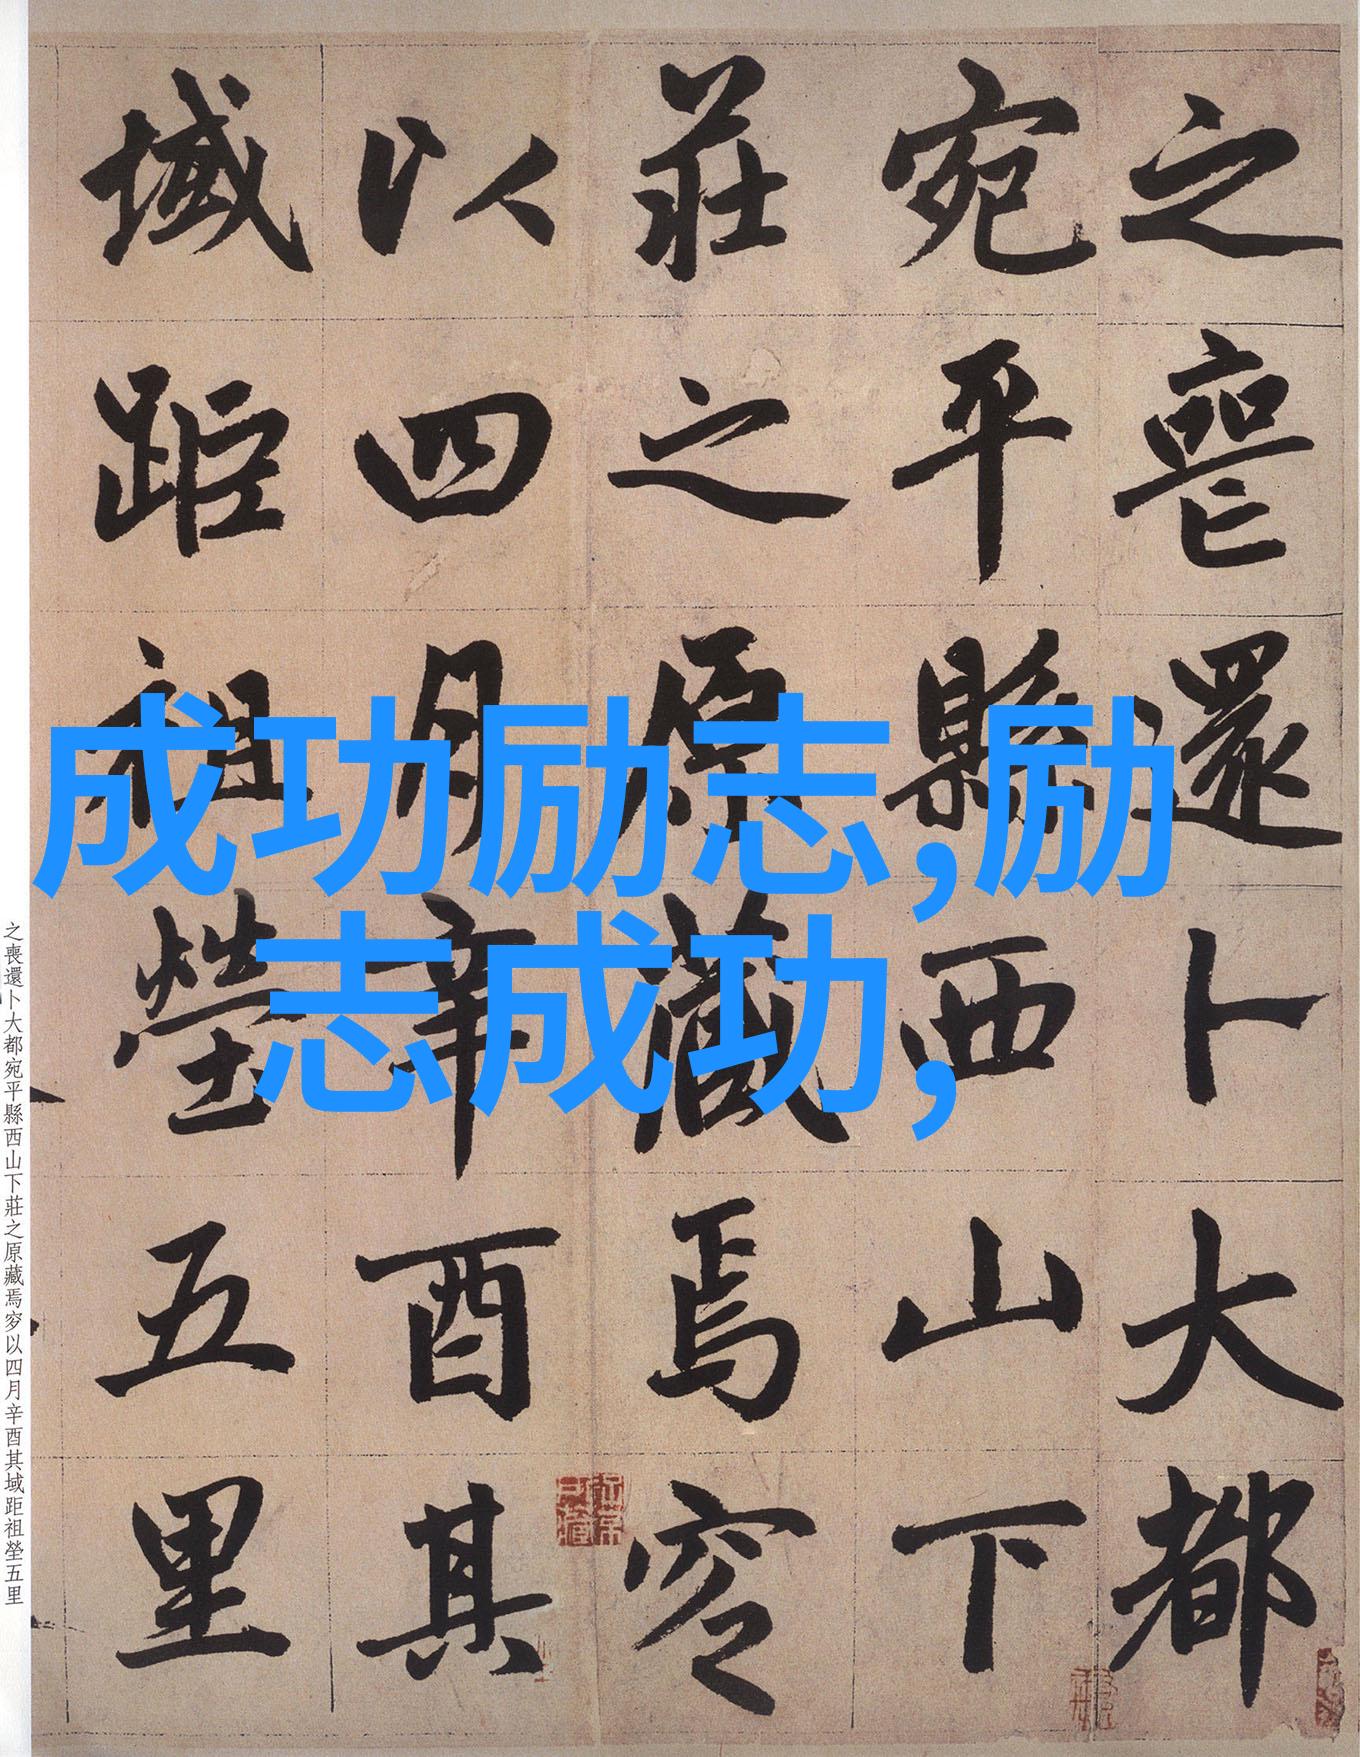 之喪還卜大都
宛平縣西山下
莊之原藏焉穸
以四月辛酉其
域距祖塋五里
成功励志,励
志成功,
之喪還卜大都宛平縣西山下莊之原藏焉穸以四月辛酉其域距祖塋五里